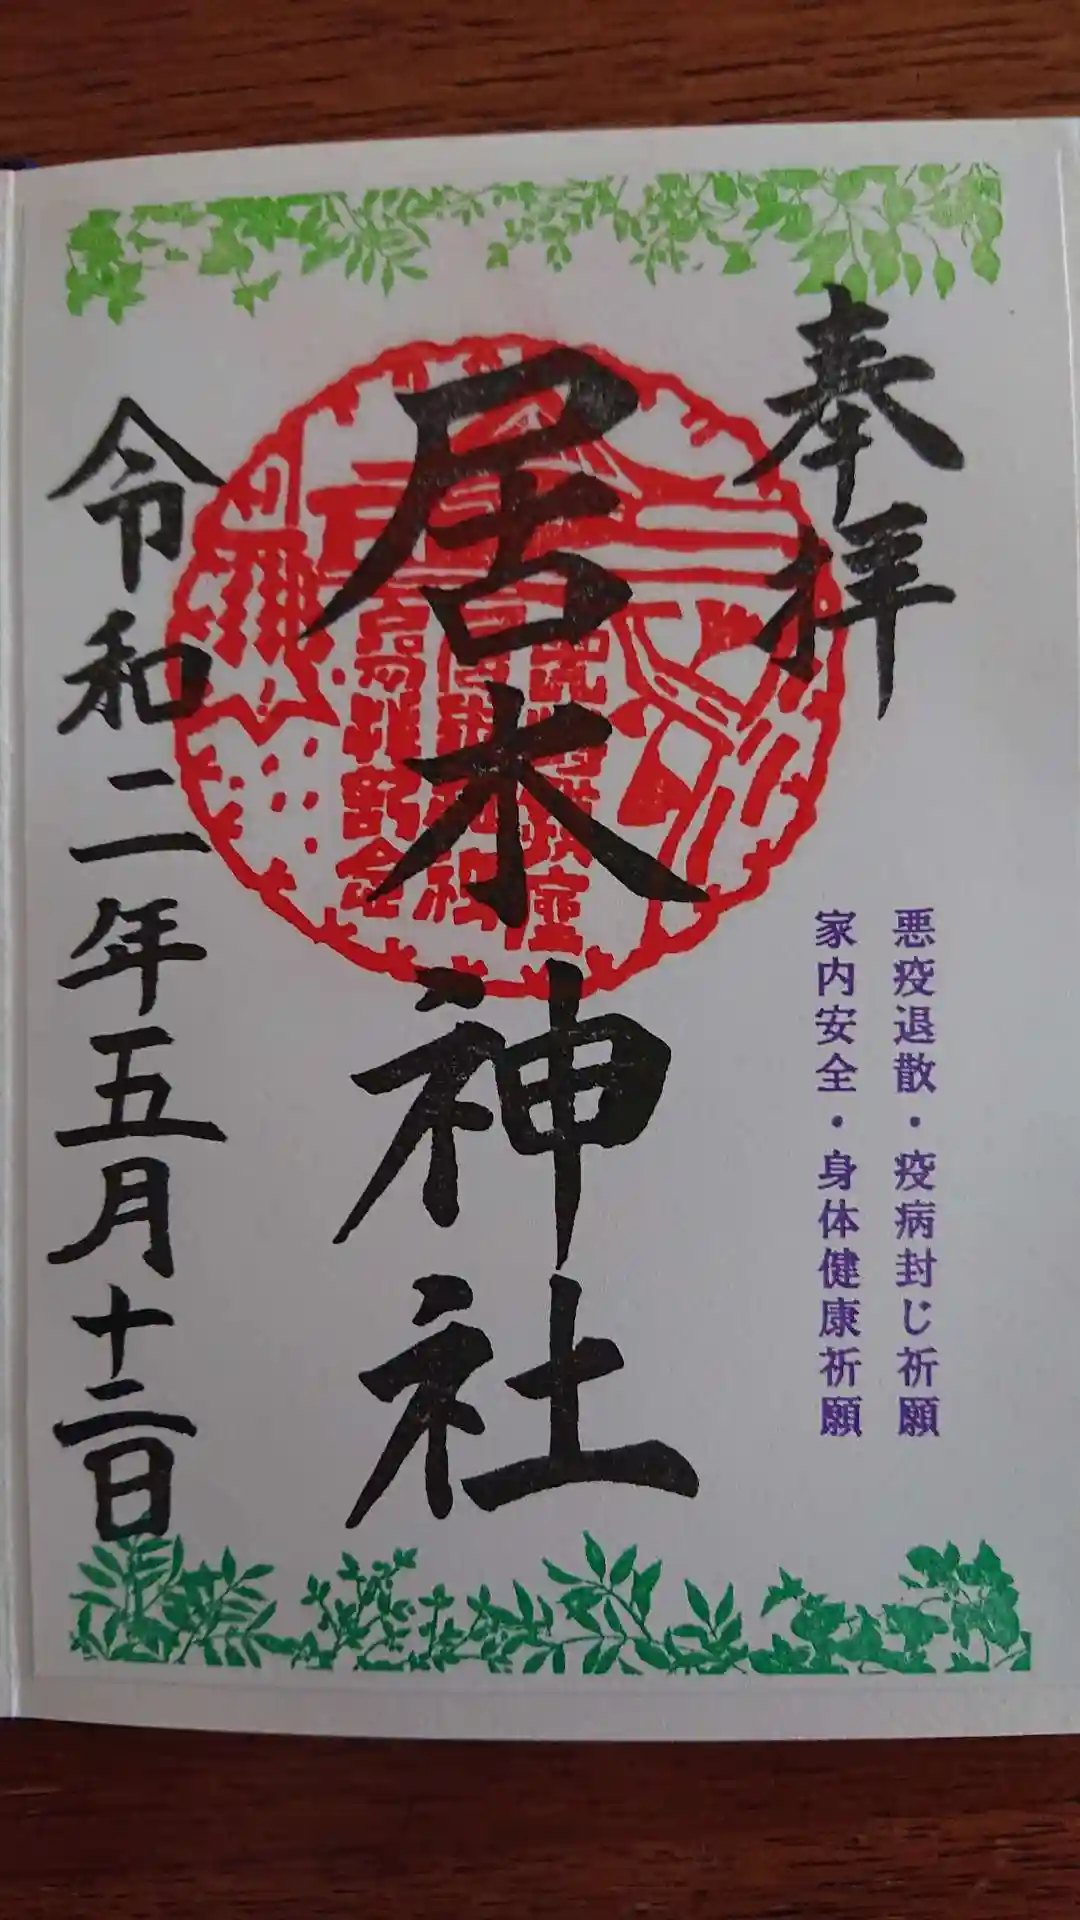 奉拝
悪疫退散・疫病封じ祈願
家内安全・身体健康祈願
居木神社
令和二年五月十二日